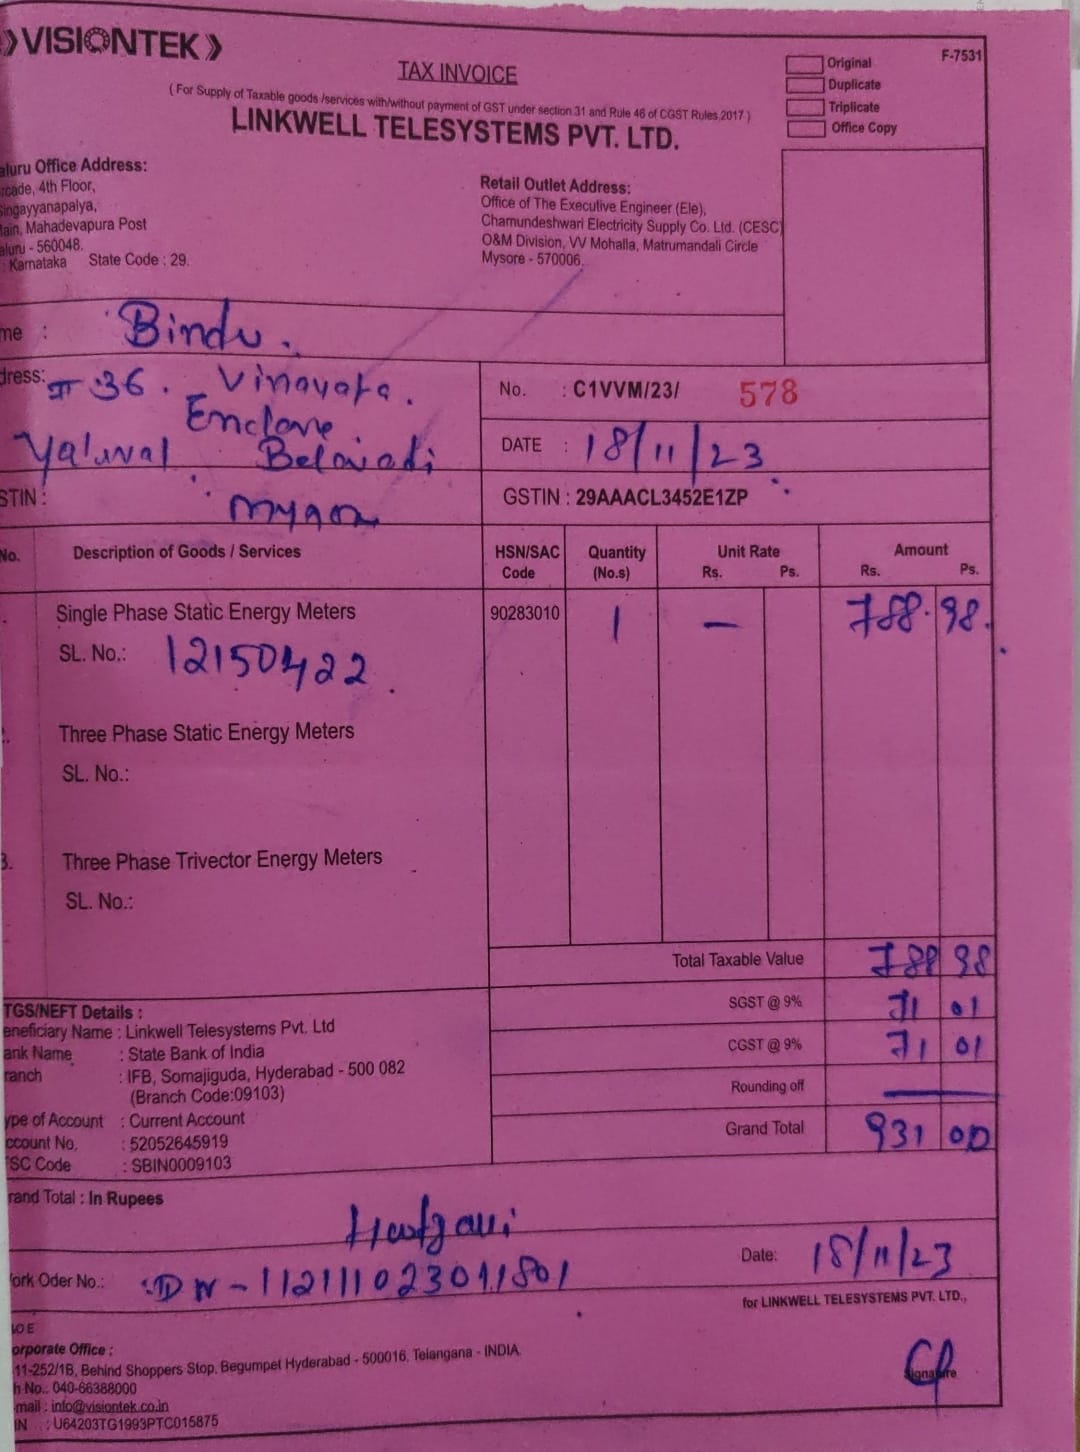 VISIONTEK
F-7531
TAX INVOICE
Original
Duplicate
Triplicate
Office Copy
( For Supply of Taxable goods /services with/without payment of GST under section 31 and Rule 46 of CGST Rules 2017 )
LINKWELL TELESYSTEMS PVT. LTD.
aluru Office Address:
rcade, 4th Floor,
Singayyanapalya,
ain, Mahadevapura Post
aluru - 560048.
: Karnataka State Code : 29.
Retail Outlet Address:
Office of The Executive Engineer (Ele),
Chamundeshwari Electricity Supply Co. Ltd. (CESC)
O&M Division, VV Mohalla, Matrumandali Circle
Mysore - 570006.
me : Bindu.
dress: 36. Vinayaka.
Enclave
Yaluval Belavadi
No. : C1VVM/23/ 578
DATE : 18/11/23
STIN :
GSTIN : 29AAACL3452E1ZP
No. Description of Goods / Services HSN/SAC Code Quantity (No.s) Unit Rate Rs. Ps. Amount Rs. Ps.
Single Phase Static Energy Meters 90283010 1 – 788.98.
SL. No.: 12150422.
Three Phase Static Energy Meters
SL. No.:
3. Three Phase Trivector Energy Meters
SL. No.:
Total Taxable Value 788 98
SGST @ 9% 71 01
CGST @ 9% 71 01
Rounding off —
Grand Total 931 00
TGS/NEFT Details :
eneficiary Name : Linkwell Telesystems Pvt. Ltd
ank Name : State Bank of India
ranch : IFB, Somajiguda, Hyderabad - 500 082
(Branch Code:09103)
ype of Account : Current Account
ccount No. : 52052645919
SC Code : SBIN0009103
rand Total : In Rupees
Date: 18/11/23
ork Oder No.: DW-112111023011801
for LINKWELL TELESYSTEMS PVT. LTD.,
Signature
orporate Office :
11-252/1B, Behind Shoppers Stop, Begumpet Hyderabad - 500016, Telangana - INDIA.
h No.: 040-66388000
mail : info@visiontek.co.in
IN : U64203TG1993PTC015875